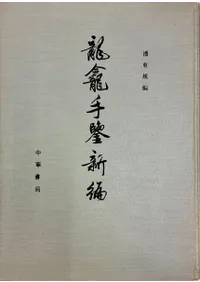 潘重規編
龍龕手鑒新編
中華書局